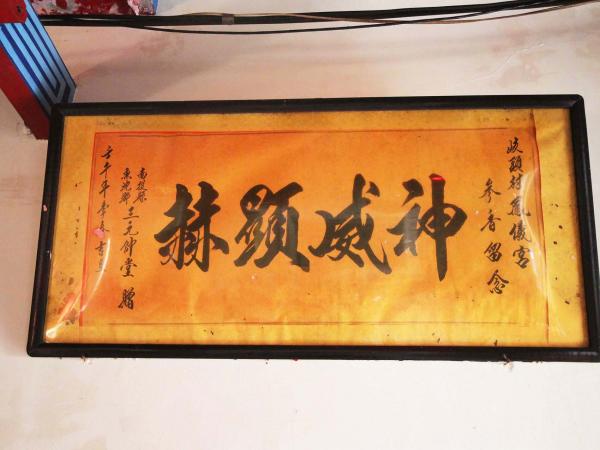 岐頭村鳳儀宮
參香留念
神威顯赫
南投縣
魚池鄉
三元帥堂 贈
壬午年季吉